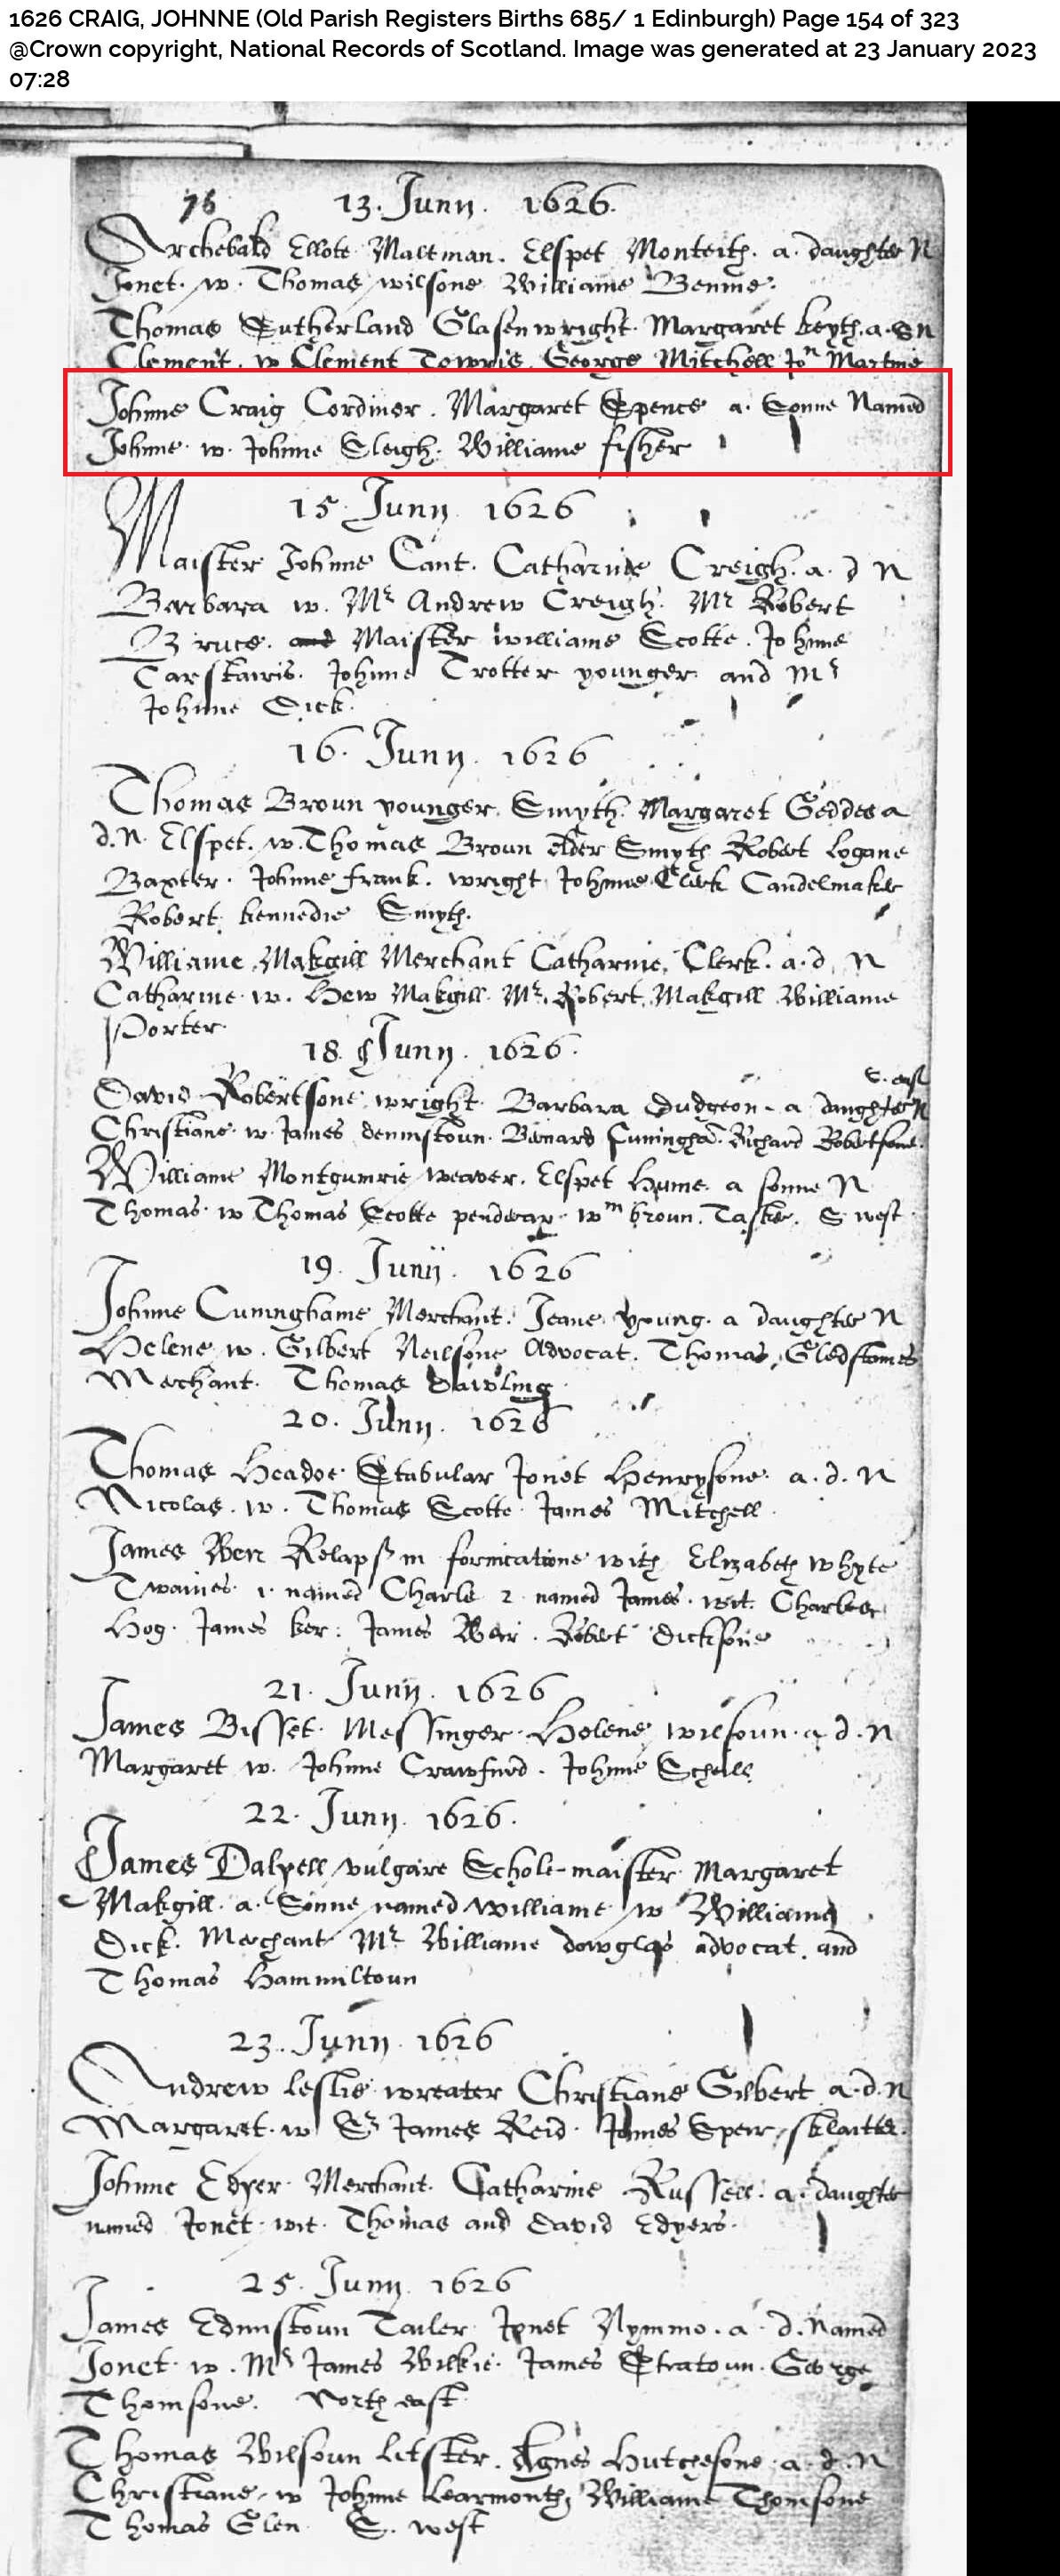 1626 CRAIG, JOHNNE (Old Parish Registers Births 685/ 1 Edinburgh) Page 154 of 323
@Crown copyright, National Records of Scotland. Image was generated at 23 January 2023
07:28
76 13. Junij. 1626.
Archebald Ellote Maltman. Elspet Monteith. a. daughter N
Jonet. w. Thomas wilsone Williame Bennie.
Thomas Sutherland Glasenwright. Margaret keyth. a. S N
Clement. w Clement Towris. George Mitchell Jon Martine
Johnne Craig Cordiner. Margaret Spence a. Sonne Named
Johnne. w. Johnne Sleigh. Williame fisher
15 Junij 1626
Maister Johnne Cant. Catharine Creigh. a. d N
Barbara w. Mr Andrew Creigh. Mr Robert
Bruce. and Maister williame Scotte. Johnne
Carstairis. Johnne Trotter younger and Mr
Johnne Dick.
16. Junij. 1626
Thomas Broun younger. Smyth. Margaret Geddes a
d. N. Elspet. w. Thomas Broun elder Smyth Robert Logane
Baxter. Johnne frank. wright Johnne Clerk Candelmaker
Robert kennedie Smyth.
Williame Makgill Merchant Catharine Clerk. a. d. N
Catharine w. Hew Makgill. Mr. Robert Makgill Williame
Porter.
18. Junij. 1626.
S. east
David Robertsone wright. Barbara Dudgeon. a daughter N
Christiane. w. James dennistoun. Barnard Cuningha. Richard Robertsone.
Williame Montgumrie weaver. Elspet Hume. a sonne N
Thomas. w Thomas Scotte wm broun. Tasker. S west
19. Junij. 1626
Johnne Cuninghame Merchant. Jeane young. a daughter N
Helene w. Gilbert Neilsone Advocat. Thomas Gledstanes
Merchant. Thomas
20. Junij. 1626
Thomas Stabular Jonet Henrysone. a. d. N
Nicolas. w. Thomas Scotte. James Mitchell.
James Weir Relaps in fornicatione with Elizabeth Whyte
Twaines. 1. named Charls 2 named James. wit. Charles
Hog. James ker: James Weir. Robert Dicksone
21. Junij. 1626
James Bisset. Messinger. Helene wilsoun. a. d. N
Margaret w. Johnne Crawfurd. Johnne
22. Junij. 1626.
James Dalyell vulgare Schole-maister Margaret
Makgill. a. Sonne named williame w Williame
Dick. Merchant Mr Williame dowglas advocat. and
Thomas Hammiltoun
23. Junij. 1626
Andrew leslie wreater Christiane Gilbert a. d. N
Margaret. w Sr James Reid. James Speir sklaitter.
Johnne Edyer. Merchant. Catharine Russell. a. daughter
named Jonet. wit. Thomas and David Edyers.
25. Junij. 1626
James Edmistoun Tailer Jonet Nymmo. a. d. Named
Jonet. w. Mr James Wilkie. James Stratoun. George
Thomsone. North east.
Thomas Wilsoun litster. Agnes Hutchesone. a. d. N
Christiane. w Johnne Learmonth. Williame Thomsone
Thomas Glen. S. west